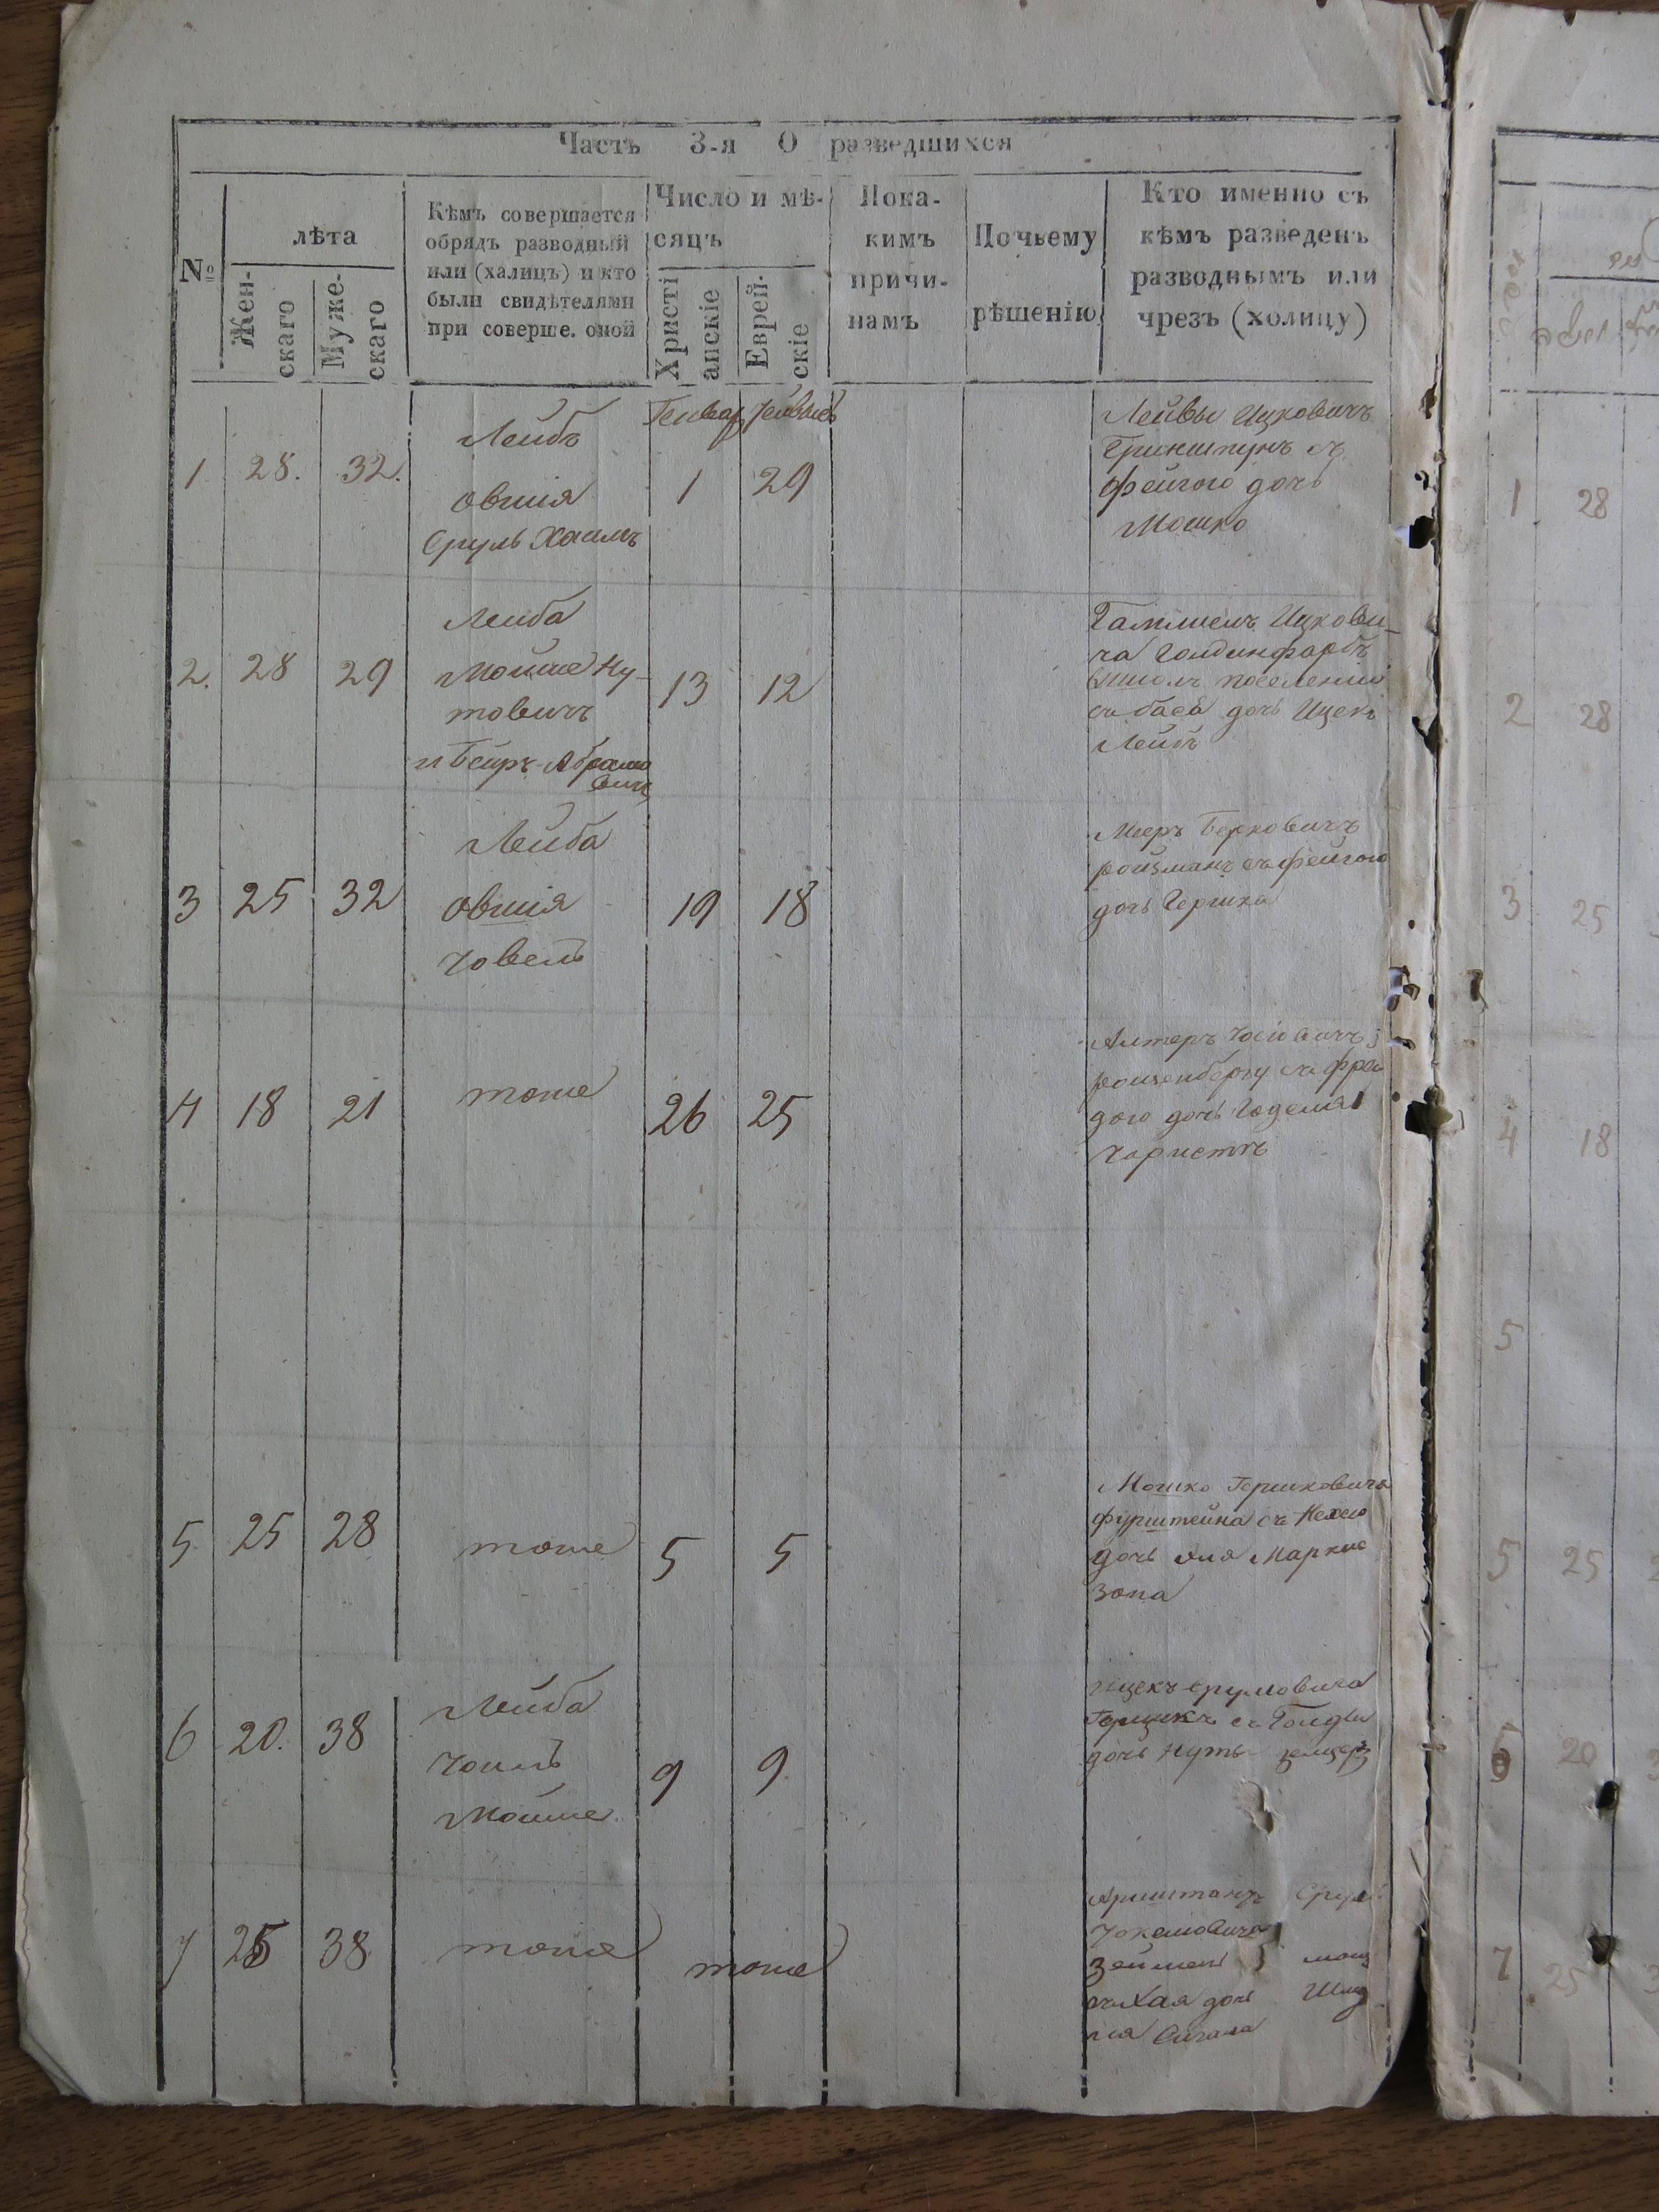 Часть 3-я О разведшихся
№
лѣта
Жен-
скаго
Муже-
скаго
Кѣмъ совершается
обрядъ разводный
или (халицъ) и кто
были свидѣтелями
при соверше. оной
Число и мѣ-
сяцъ
Христі
анскіе
Еврей-
скіе
Пока-
кимъ
причи-
намъ
Почьему
рѣшенію
Кто именно съ
кѣмъ разведенъ
разводнымъ или
чрезъ (холицу)
1 28. 32.
Лейбъ
Овшія
Сруль Хаимъ
Генвар
1 29
Лейвы Ицковичъ
Гринштунъ съ
фейгою дочь
Мошко
2. 28 29
Лейба
Мошке Ну-
товичъ
и Беиръ Абрамо
вичъ
13 12
Гамлиелъ Ицкови-
ча Голдинфарбъ
поселении
съ баса дочь Ицекъ
Лейбъ
3 25 32
Лейба
Овшія
Іовель
19 18
Мееръ Берковичъ
ройзманъ съ фейгою
дочь Гершка
4 18 21
тоже
26 25
Алтеръ Іосіовичъ
розенбергу съ фрей
дою дочь Годелия
5 25 28
тоже
5 5
Мошко Гершковича
фурштейна съ Нехею
дочь Маркие
зона
6 20. 38
Лейба
Іоиль
Мошке.
9 9.
Ицекъ Срулювича
Герщикъ съ Голды
дочь Нуты
7 25 38
тоже
тоже
Сруль
съ Хая дочь
Сигала
1 28
2 28
3 25
4 18
5
5 25
6 20
7 25